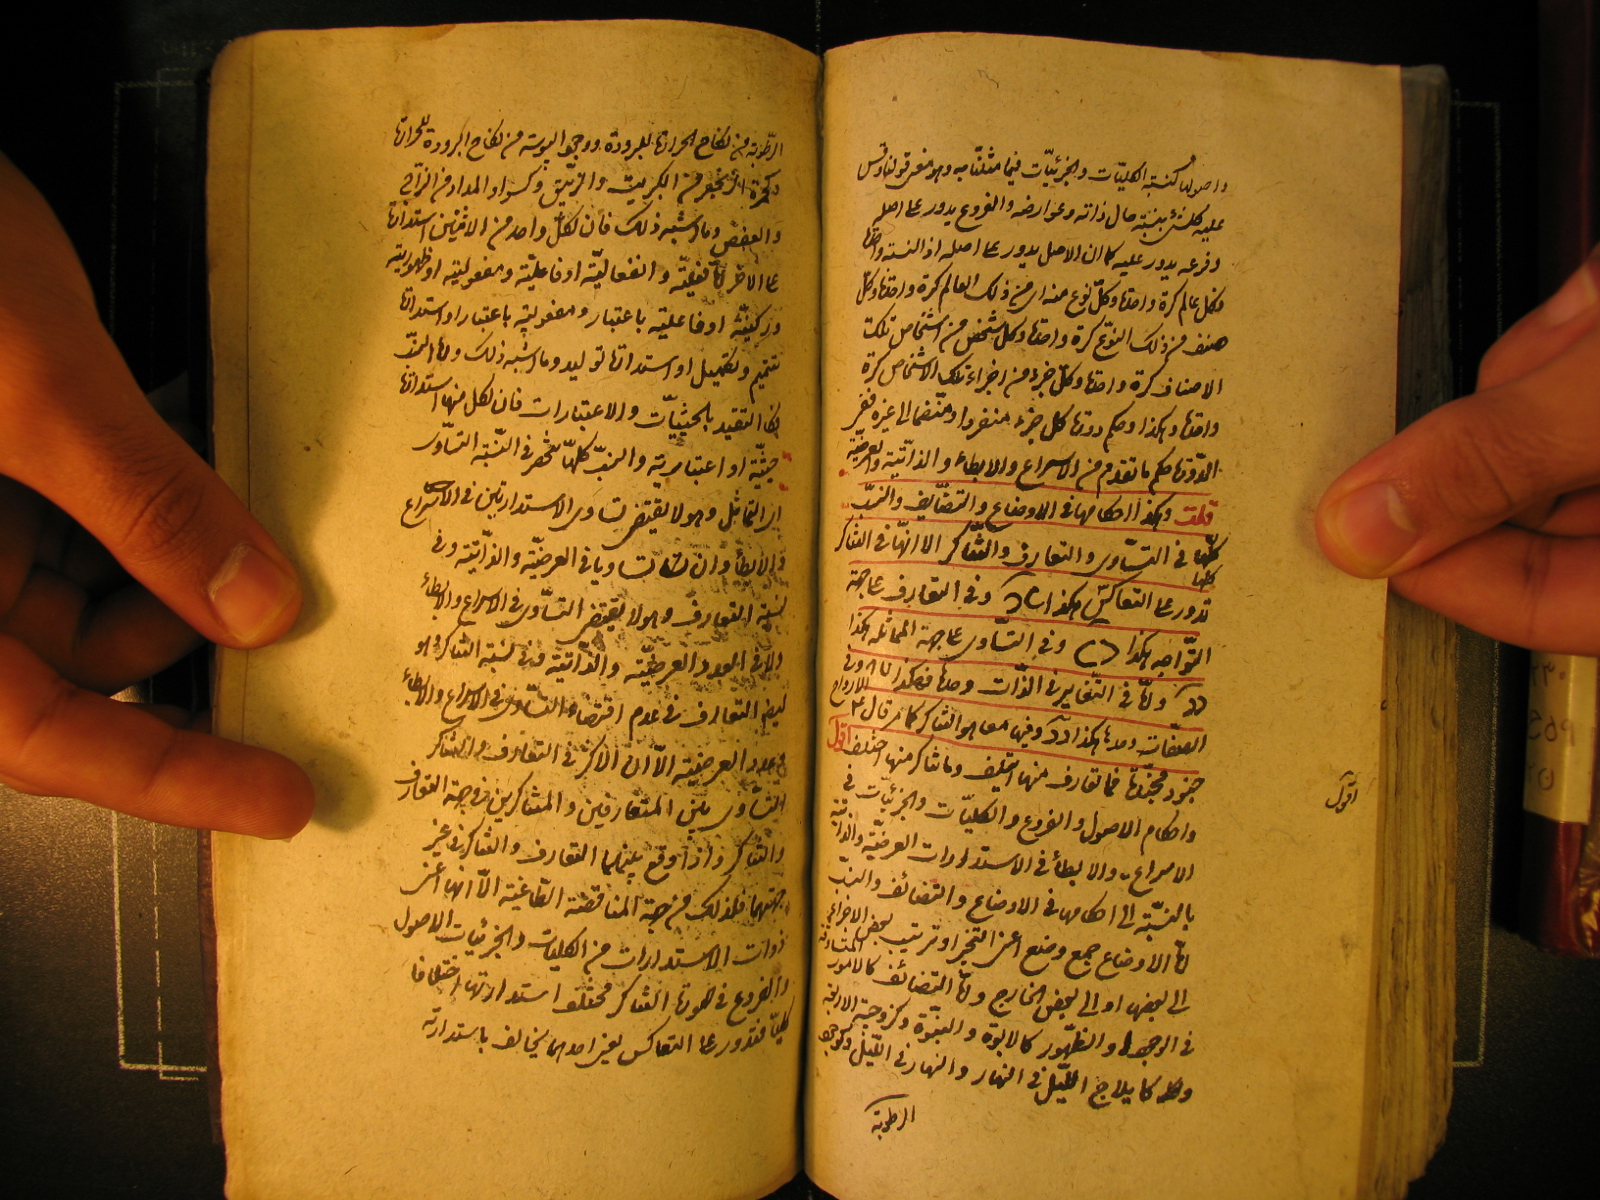 واصولها كنسبة الكليّات والجزئيّات فيما مثلنا به وهو معنى قولنا وقس
عليه كل شئ بنسبة حال ذاته وعوارضه والفروع يدور على اصله
وفرعه يدور عليه كما ان الاصل يدور على اصله اذ النسبة واحدة
وكل عالم كرة واحدة وكل نوع منه اى من ذلك العالم كرة واحدة وكل
صنف من ذلك النوع كرة واحدة وكل شخص من اشخاص تلك
الاصناف كرة واحدة وكل جزء من اجزاء تلك الاشخاص كرة
واحدة وهكذا وحكم دورة كل جزء منفردا ومنضما الى غيره فى
الدورة حكم ما تقدم من الاسراع والابطاء والذاتية والعرضية
قلت وهكذا احكامها فى الاوضاع والتضايف والنسب
كلها فى التساوى والتعارف والتناكر الا انها فى التناكر
كلها
تدور على التعاكس هكذا وفى التعارف على جهة
التواجه هكذا وفى التساوى على جهة المماثلة هكذا
واما فى التغاير فى الذات وحدها فهكذا وفى
الصفات وحدها هكذا وفيهما معا هو التناكر كما مر قال الارواح
جنود مجندة فما تعارف منها ائتلف وما تناكر منها اختلف اقول
اقول
واحكام الاصول والفروع والكليّات والجزئيّات فى
الاسراع والابطاء فى الاستدارات العرضية والذاتية
بالنسبة الى احكامها فى الاوضاع والتضائف والنسب
اما الاوضاع جمع وضع اعنى التحيز او ترتيب بعض الاجزاء
الى بعضها او الى بعض الخارج واما التضائف كالامور المتساوقة
فى الوجود والظهور كالابوة والبنوة وكزوجية الاربعة
كايلاج الليل فى النهار والنهار فى الليل وكوجود
الرطوبة
الرطوبة من نكاح الحرارة للبرودة ووجود اليبوسة من نكاح البرودة للحرارة
وكحمرة الزنجفر من الكبريت والزيبق وكسواد المداد من الزاج
والعفص وما اشبه ذلك فان لكل واحد من الاثنين استدارة
على الاخر اما فعلية وانفعالية او فاعلية ومفعولية او ظهورية
وركنية او فاعلية باعتبار ومفعولية باعتبار او استدارة
تتميم وتكميل او استدارة توليد وما اشبه ذلك واما النسب
فكا التقيد بالحيثيّات والاعتبارات فان لكل منها استدارة
حيثية او اعتبارية والنسب كلها تنحصر فى النسبة التساوى
اى التماثل وهو لا يقتضى تساوى الاستدارتين فى الاسراع
والابطاء وان تساويا فى العرضية والذاتية وفى
نسبة التعارف وهو لا يقتضى التساوى فى الاسراع والابطاء
ولا فى العدد العرضية والذاتية وفى نسبة التناكر وهو
كنسبة التعارف فى عدم اقتضاء التساوى فى الاسراع والابطاء
وعدد العرضية الا ان الاكثر فى التعارف والتناكر
التساوى بين المتعارفين والمتناكرين فى جهة التعارف
والتناكر واذا وقع بينهما التعارف والتناكر فى غير
جهتهما فلذلك من جهة المناقضة الطاغية الا انها اعنى
ذوات الاستدارات من الكليات والجزئيات الاصول
والفروع فى صورة التناكر مختلف استدارتها اختلافا
كليا فتدور على التعاكس يعنى احدهما يخالف باستدارته